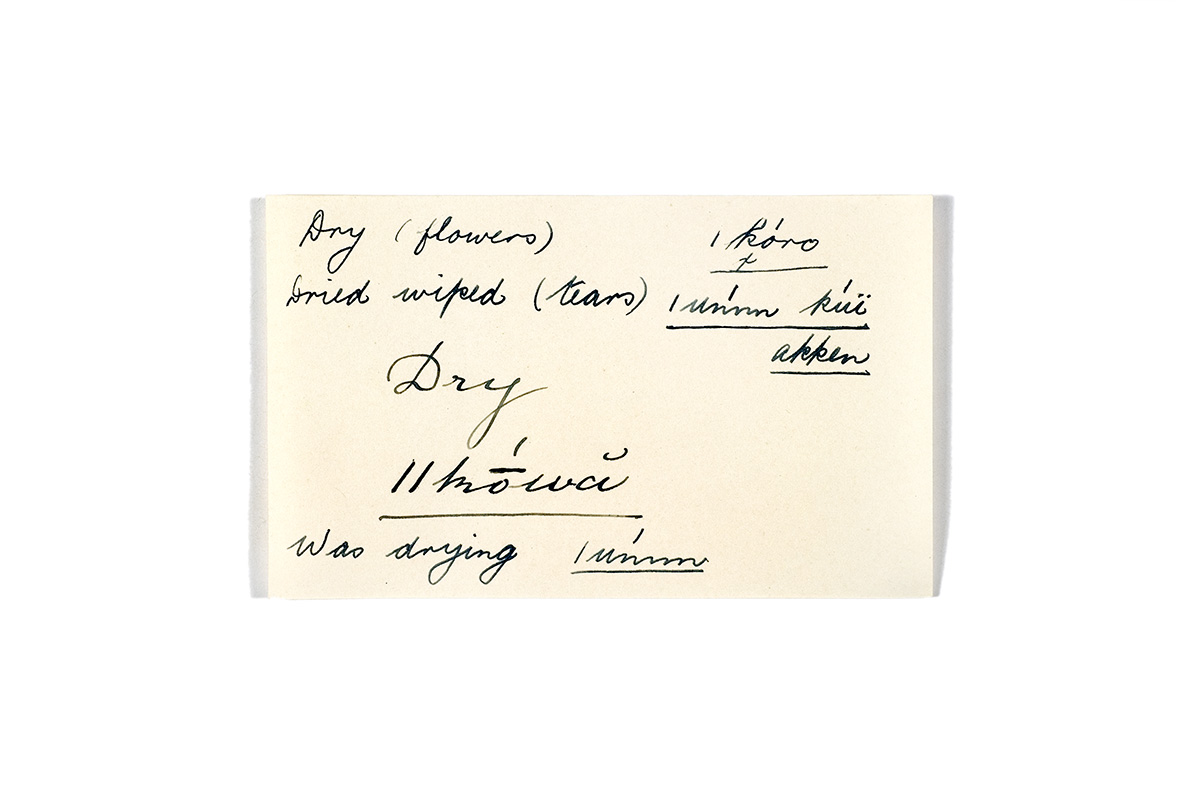 Dry (flowers) |kóro
Dried wiped (tears) |uńnn kúï
akken
Dry
||kṓwă
Was drying |uńnn